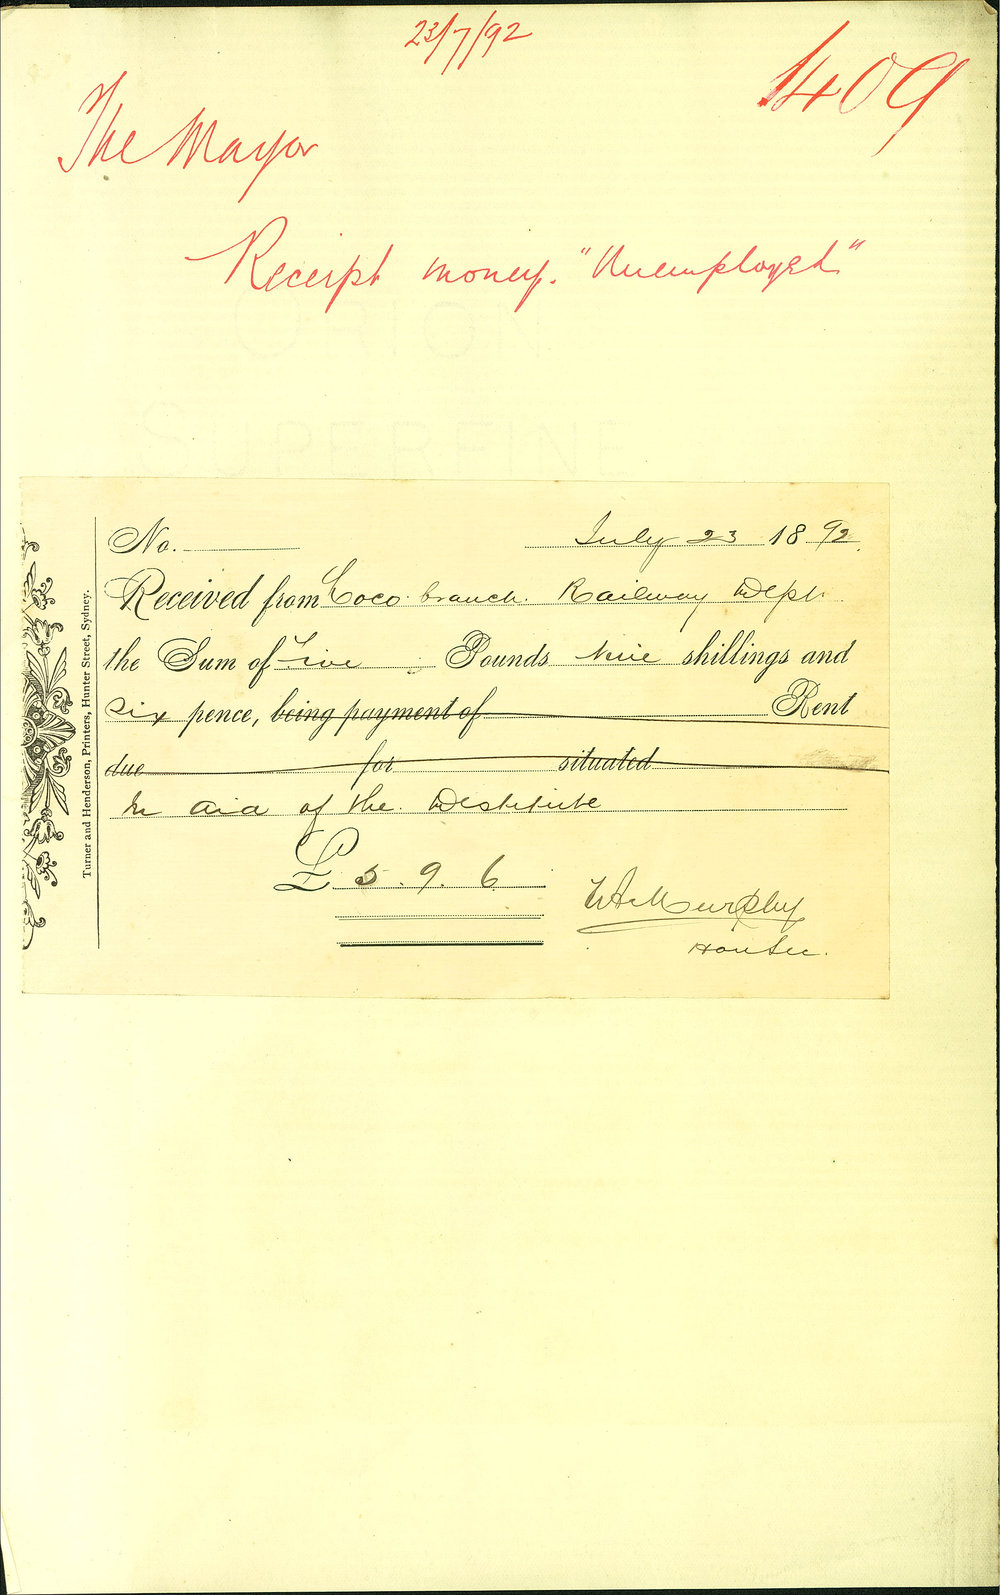 23/7/92
1409
The Mayor
Receipt money. "Unemployed"
No. July 23 1892.
Received from Loco. branch. Railway Dept.
the Sum of Five Pounds Nine shillings and
Six pence, being payment of Rent
due for situated
In aid of the Destitute
£ 5. 9. 6
Murphy
Hon Sec.
Turner and Henderson, Printers, Hunter Street, Sydney.
SUPERFINE